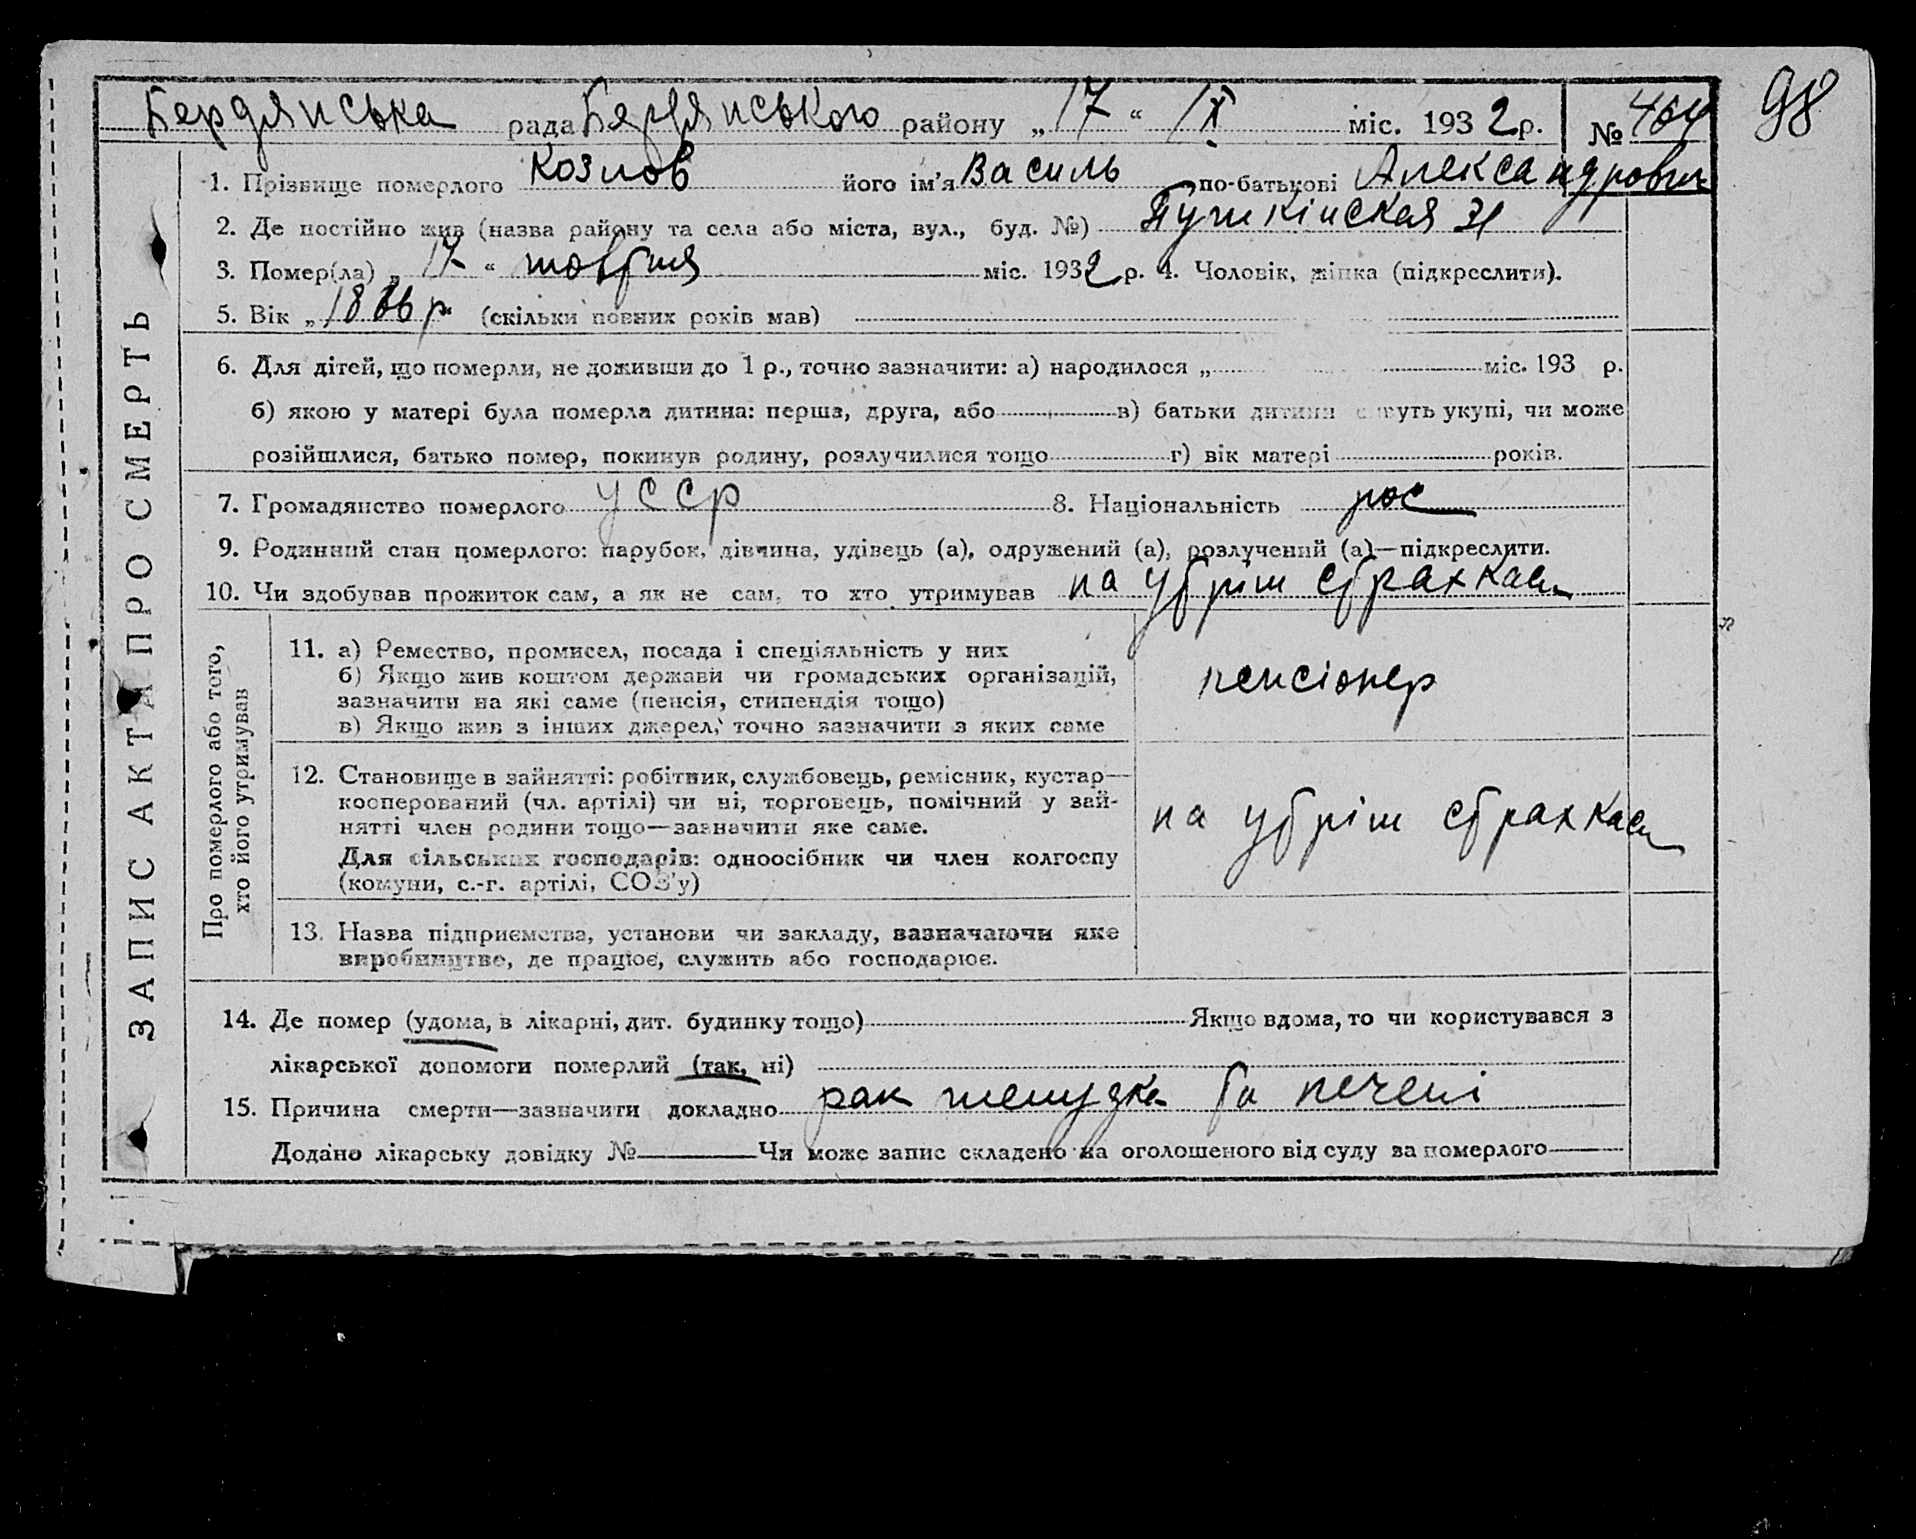 98
Бердянська рада Бердянського району „17“ IX міс. 1932 р. № 464
1. Прізвище померлого Козлов його ім'я Василь по-батькові Александрович
2. Де постійно жив (назва району та села або міста, вул., буд. №) Пушкінская 31
3. Помер(ла) „17“ жовтня міс. 1932 р. 4. Чоловік, жінка (підкреслити).
5. Вік „1866 р. (скільки повних років мав)
6. Для дітей, що померли, не доживши до 1 р., точно зазначити: а) народилося „ міс. 193 р.
б) якою у матері була померла дитина: перша, друга, або в) батьки дитини живуть укупі, чи може
розійшлися, батько помер, покинув родину, розлучилися тощо г) вік матері років.
7. Громадянство померлого УССР 8. Національність рос
9. Родинний стан померлого: парубок, дівчина, удівець (а), одружений (а), розлучений (а)—підкреслити.
10. Чи здобував прожиток сам, а як не сам, то хто утримував на утрім страхкаси
ЗАПИС АКТА ПРО СМЕРТЬ
Про померлого або того,
хто його утримував
11. а) Ремество, промисел, посада і спеціяльність у них
б) Якщо жив коштом держави чи громадських організацій,
зазначити на які саме (пенсія, стипендія тощо)
в) Якщо жив з інших джерел, точно зазначити з яких саме
пенсіонер
12. Становище в зайнятті: робітник, службовець, ремісник, кустар—
кооперований (чл. артілі) чи ні, торговець, помічний у зай-
нятті член родини тощо—зазначити яке саме.
Для сільських господарів: одноосібник чи член колгоспу
(комуни, с.-г. артілі, СОЗ'у)
на утрім страхкаси
13. Назва підприємства, установи чи закладу, зазначаючи яке
виробництво, де працює, служить або господарює.
14. Де помер (удома, в лікарні, дит. будинку тощо) Якщо вдома, то чи користувався з
лікарської допомоги померлий (так, ні)
15. Причина смерти—зазначити докладно рак желудка та печені
Додано лікарську довідку № Чи може запис складено на оголошеного від суду за померлого